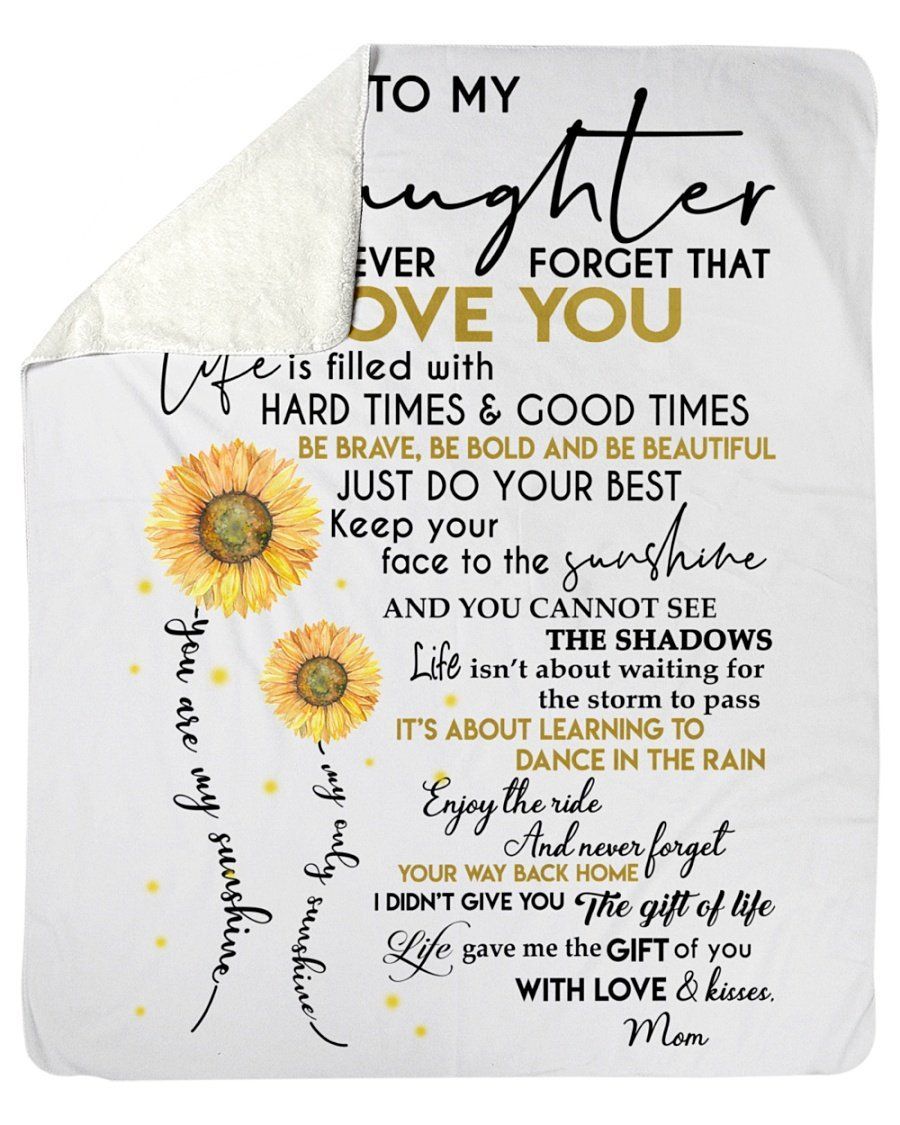 TO MY
ughter
EVER FORGET THAT
OVE YOU
Life is filled with
HARD TIMES & GOOD TIMES
BE BRAVE, BE BOLD AND BE BEAUTIFUL
JUST DO YOUR BEST
Keep your
face to the sunshine
AND YOU CANNOT SEE
THE SHADOWS
Life isn't about waiting for
the storm to pass
IT'S ABOUT LEARNING TO
DANCE IN THE RAIN
Enjoy the ride
And never forget
YOUR WAY BACK HOME
I DIDN'T GIVE YOU The gift of life
Life gave me the GIFT of you
WITH LOVE & kisses,
Mom
you are my sunshine
my only sunshine